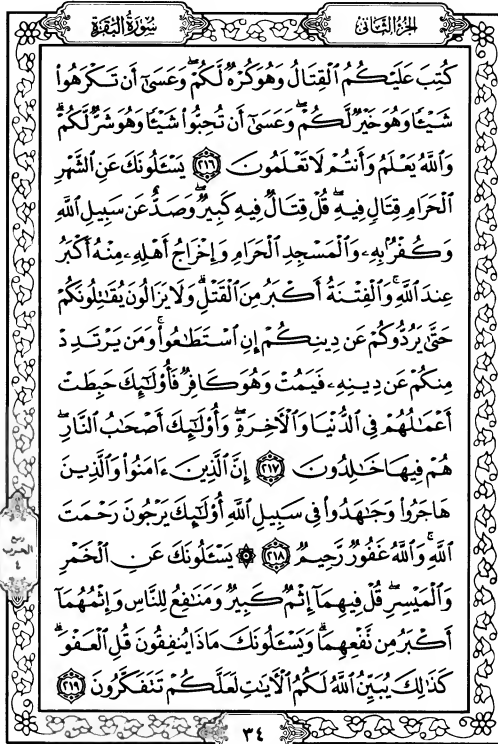 سُورَةُ البَقَرَةِ
الجزء الثاني
كُتِبَ عَلَيْكُمُ ٱلْقِتَالُ وَهُوَ كُرْهٌ لَّكُمْ ۖ وَعَسَىٰٓ أَن تَكْرَهُوا۟
شَيْـًٔا وَهُوَ خَيْرٌ لَّكُمْ ۖ وَعَسَىٰٓ أَن تُحِبُّوا۟ شَيْـًٔا وَهُوَ شَرٌّ لَّكُمْ ۗ
وَٱللَّهُ يَعْلَمُ وَأَنتُمْ لَا تَعْلَمُونَ ٢١٦ يَسْـَٔلُونَكَ عَنِ ٱلشَّهْرِ
ٱلْحَرَامِ قِتَالٍ فِيهِ ۖ قُلْ قِتَالٌ فِيهِ كَبِيرٌ ۖ وَصَدٌّ عَن سَبِيلِ ٱللَّهِ
وَكُفْرٌۢ بِهِۦ وَٱلْمَسْجِدِ ٱلْحَرَامِ وَإِخْرَاجُ أَهْلِهِۦ مِنْهُ أَكْبَرُ
عِندَ ٱللَّهِ ۚ وَٱلْفِتْنَةُ أَكْبَرُ مِنَ ٱلْقَتْلِ ۗ وَلَا يَزَالُونَ يُقَـٰتِلُونَكُمْ
حَتَّىٰ يَرُدُّوكُمْ عَن دِينِكُمْ إِنِ ٱسْتَطَـٰعُوا۟ ۚ وَمَن يَرْتَدِدْ
مِنكُمْ عَن دِينِهِۦ فَيَمُتْ وَهُوَ كَافِرٌ فَأُو۟لَـٰٓئِكَ حَبِطَتْ
أَعْمَـٰلُهُمْ فِى ٱلدُّنْيَا وَٱلْـَٔاخِرَةِ ۖ وَأُو۟لَـٰٓئِكَ أَصْحَـٰبُ ٱلنَّارِ ۖ
هُمْ فِيهَا خَـٰلِدُونَ ٢١٧ إِنَّ ٱلَّذِينَ ءَامَنُوا۟ وَٱلَّذِينَ
هَاجَرُوا۟ وَجَـٰهَدُوا۟ فِى سَبِيلِ ٱللَّهِ أُو۟لَـٰٓئِكَ يَرْجُونَ رَحْمَتَ
ٱللَّهِ ۚ وَٱللَّهُ غَفُورٌ رَّحِيمٌ ٢١٨ ۞ يَسْـَٔلُونَكَ عَنِ ٱلْخَمْرِ
وَٱلْمَيْسِرِ ۖ قُلْ فِيهِمَآ إِثْمٌ كَبِيرٌ وَمَنَـٰفِعُ لِلنَّاسِ وَإِثْمُهُمَآ
أَكْبَرُ مِن نَّفْعِهِمَا ۗ وَيَسْـَٔلُونَكَ مَاذَا يُنفِقُونَ قُلِ ٱلْعَفْوَ ۗ
كَذَٰلِكَ يُبَيِّنُ ٱللَّهُ لَكُمُ ٱلْـَٔايَـٰتِ لَعَلَّكُمْ تَتَفَكَّرُونَ ٢١٩
ربع
الحزب
٤
٣٤